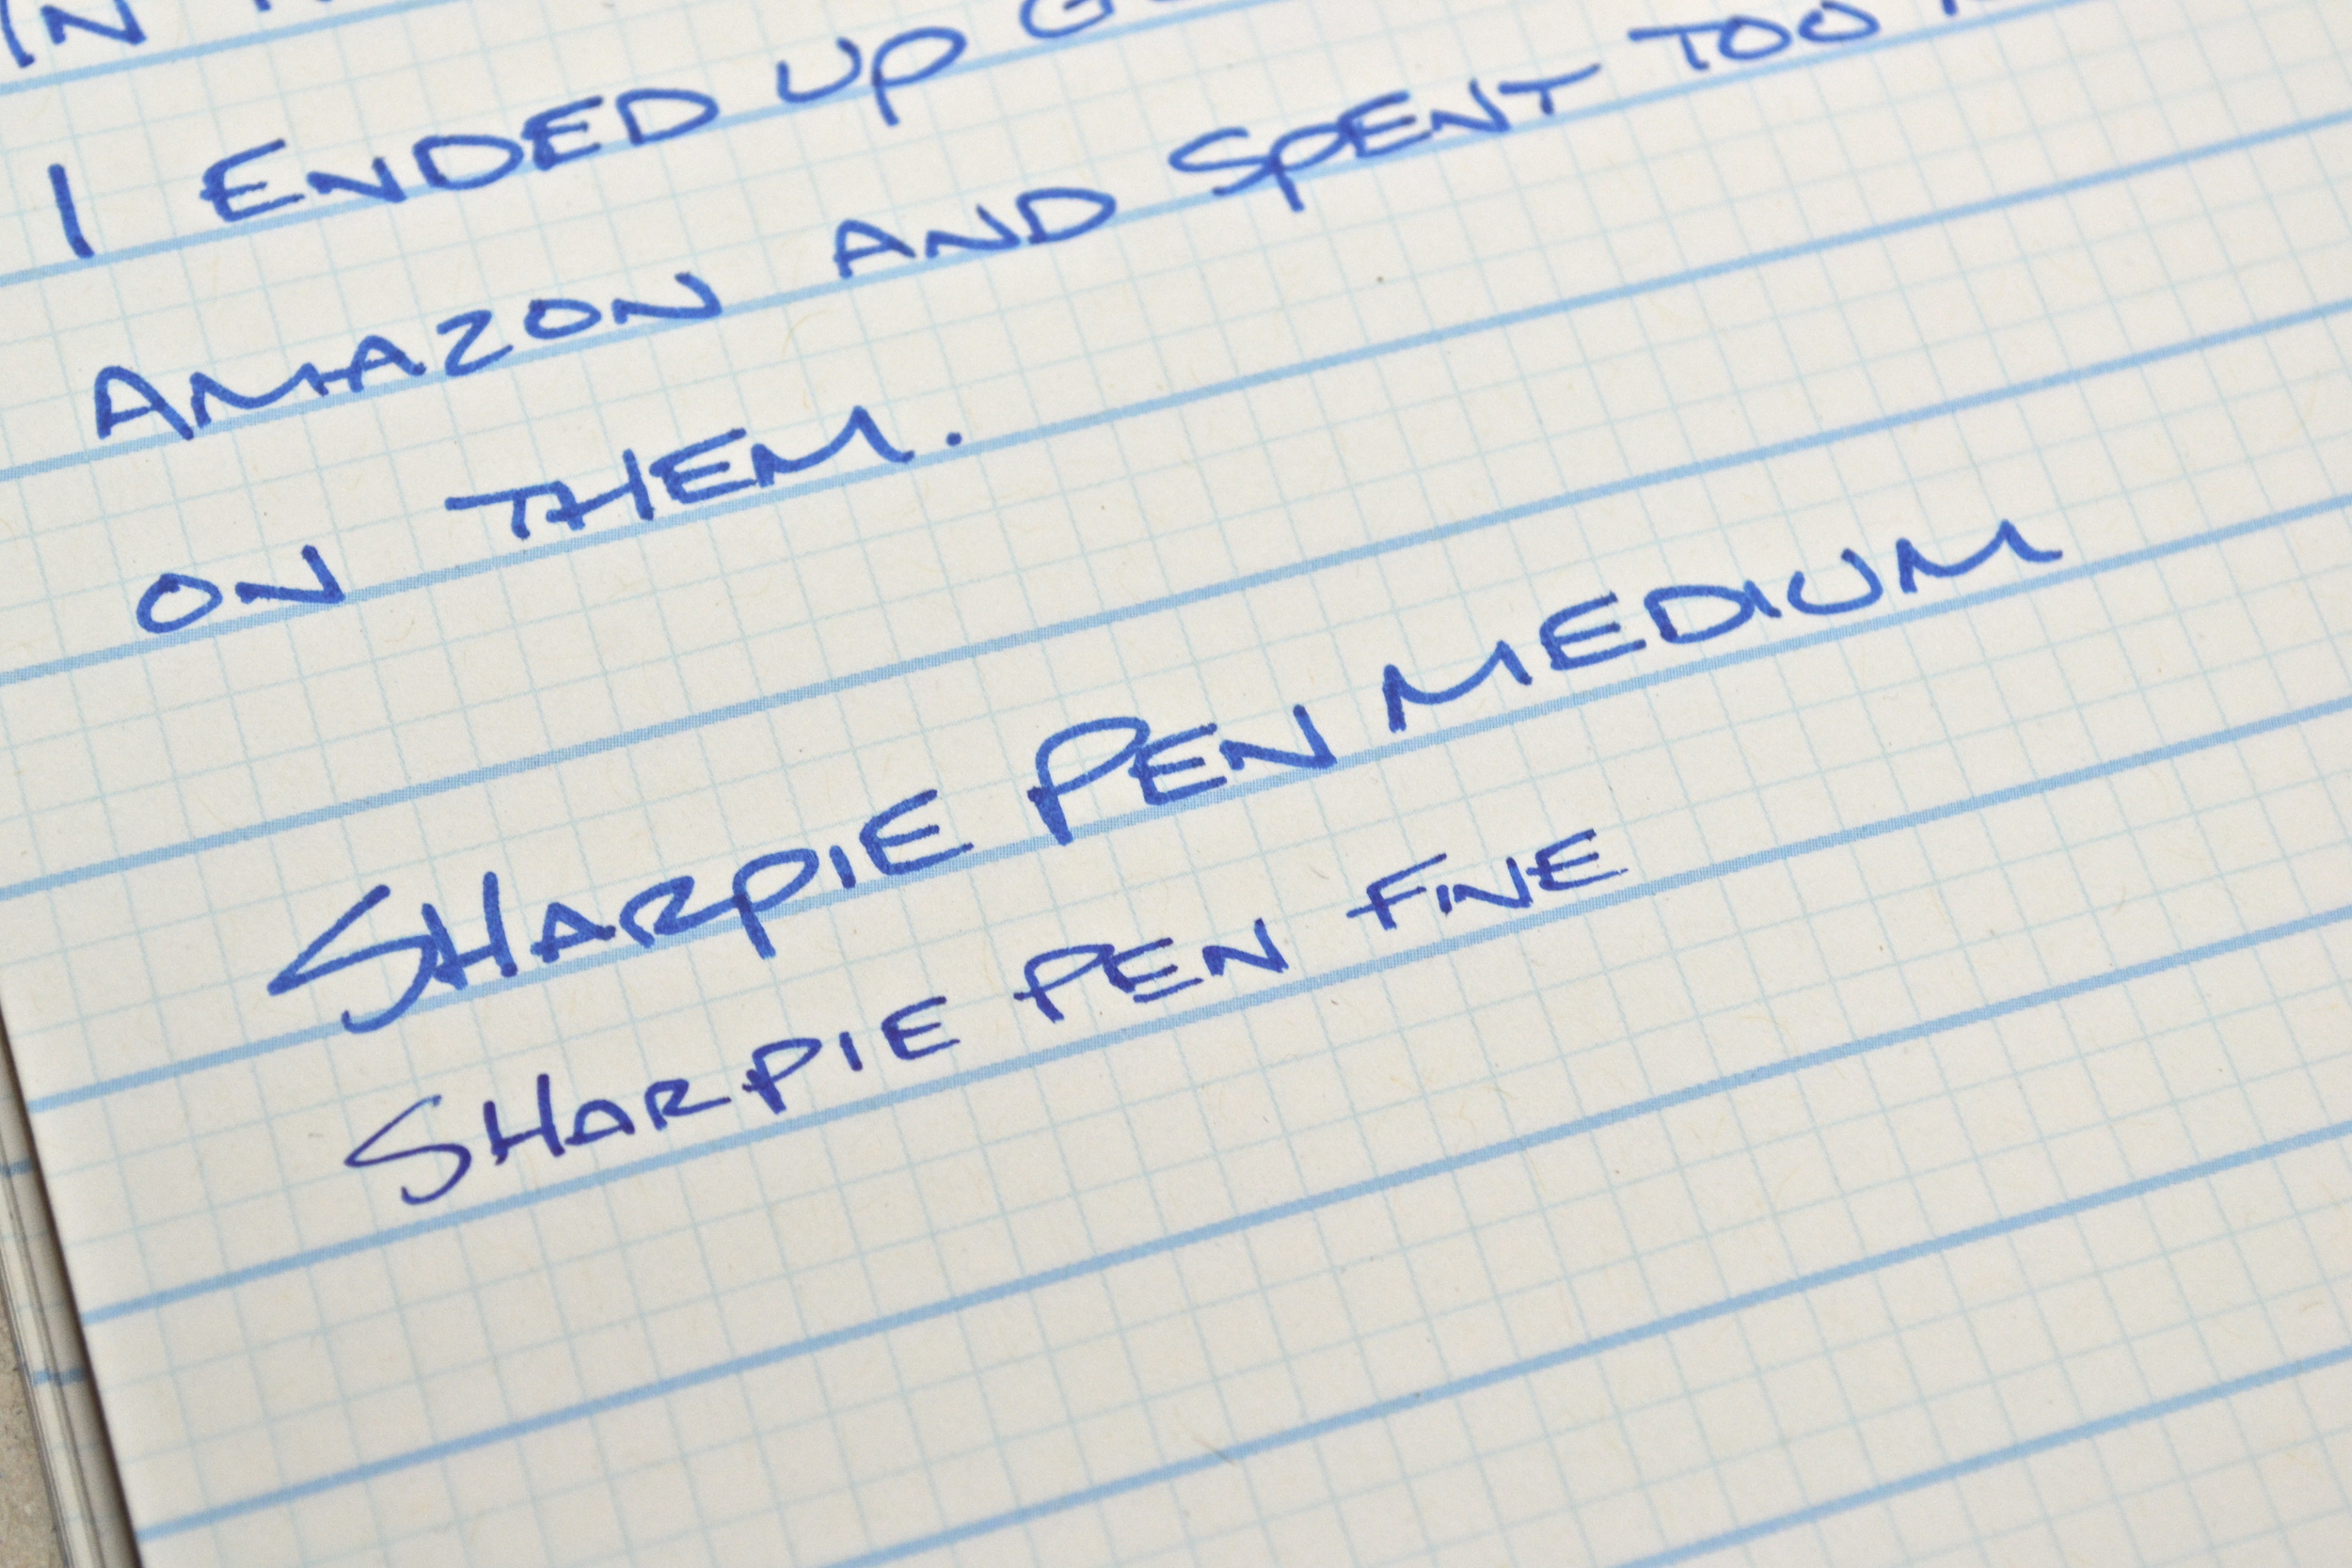 IN
I ENDED UP
AMAZON AND SPENT TOO
ON THEM.
SHARPIE PEN MEDIUM
SHARPIE PEN FINE